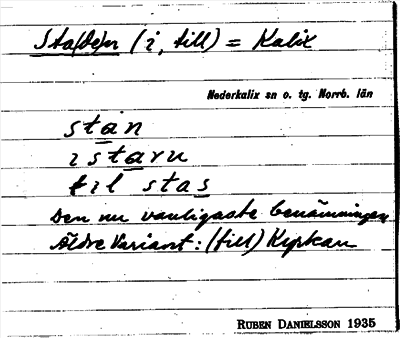 Sta(de)n (i, till) = Kalix
Nederkalix sn o. tg. Norrb. län
stan
i staru
til stas
Den nu vanligaste benämningen
Äldre Variant: (till) Kyrkan
RUBEN DANIELSSON 1935